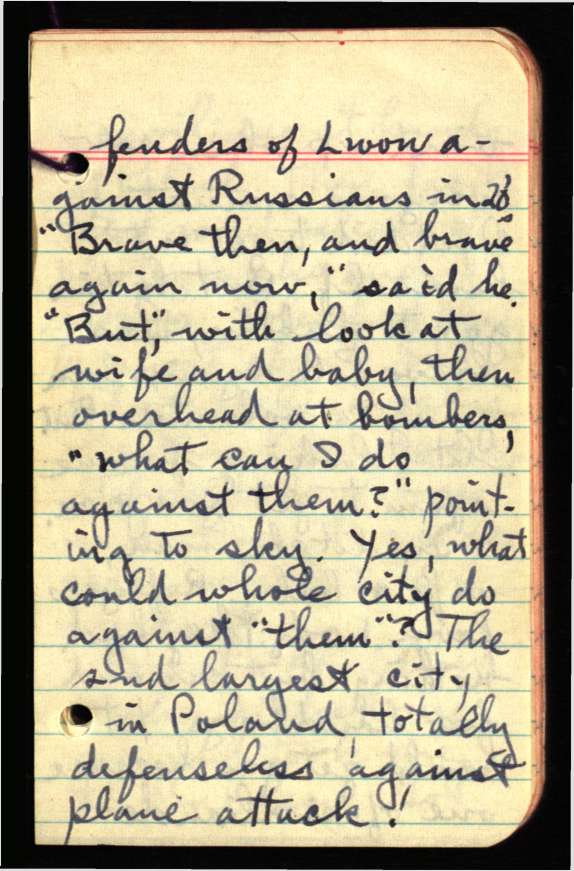 fenders of Lwow a-
gainst Russians in 20's
"Brave then, and brave
again now," said he.
"But", with look at
wife and baby, then
overhead at bombers,
"what can I do
against them?" point-
ing to sky. Yes, what
could whole city do
against "them"? The
2nd largest city
in Poland, totally
defenseless against
plane attack!